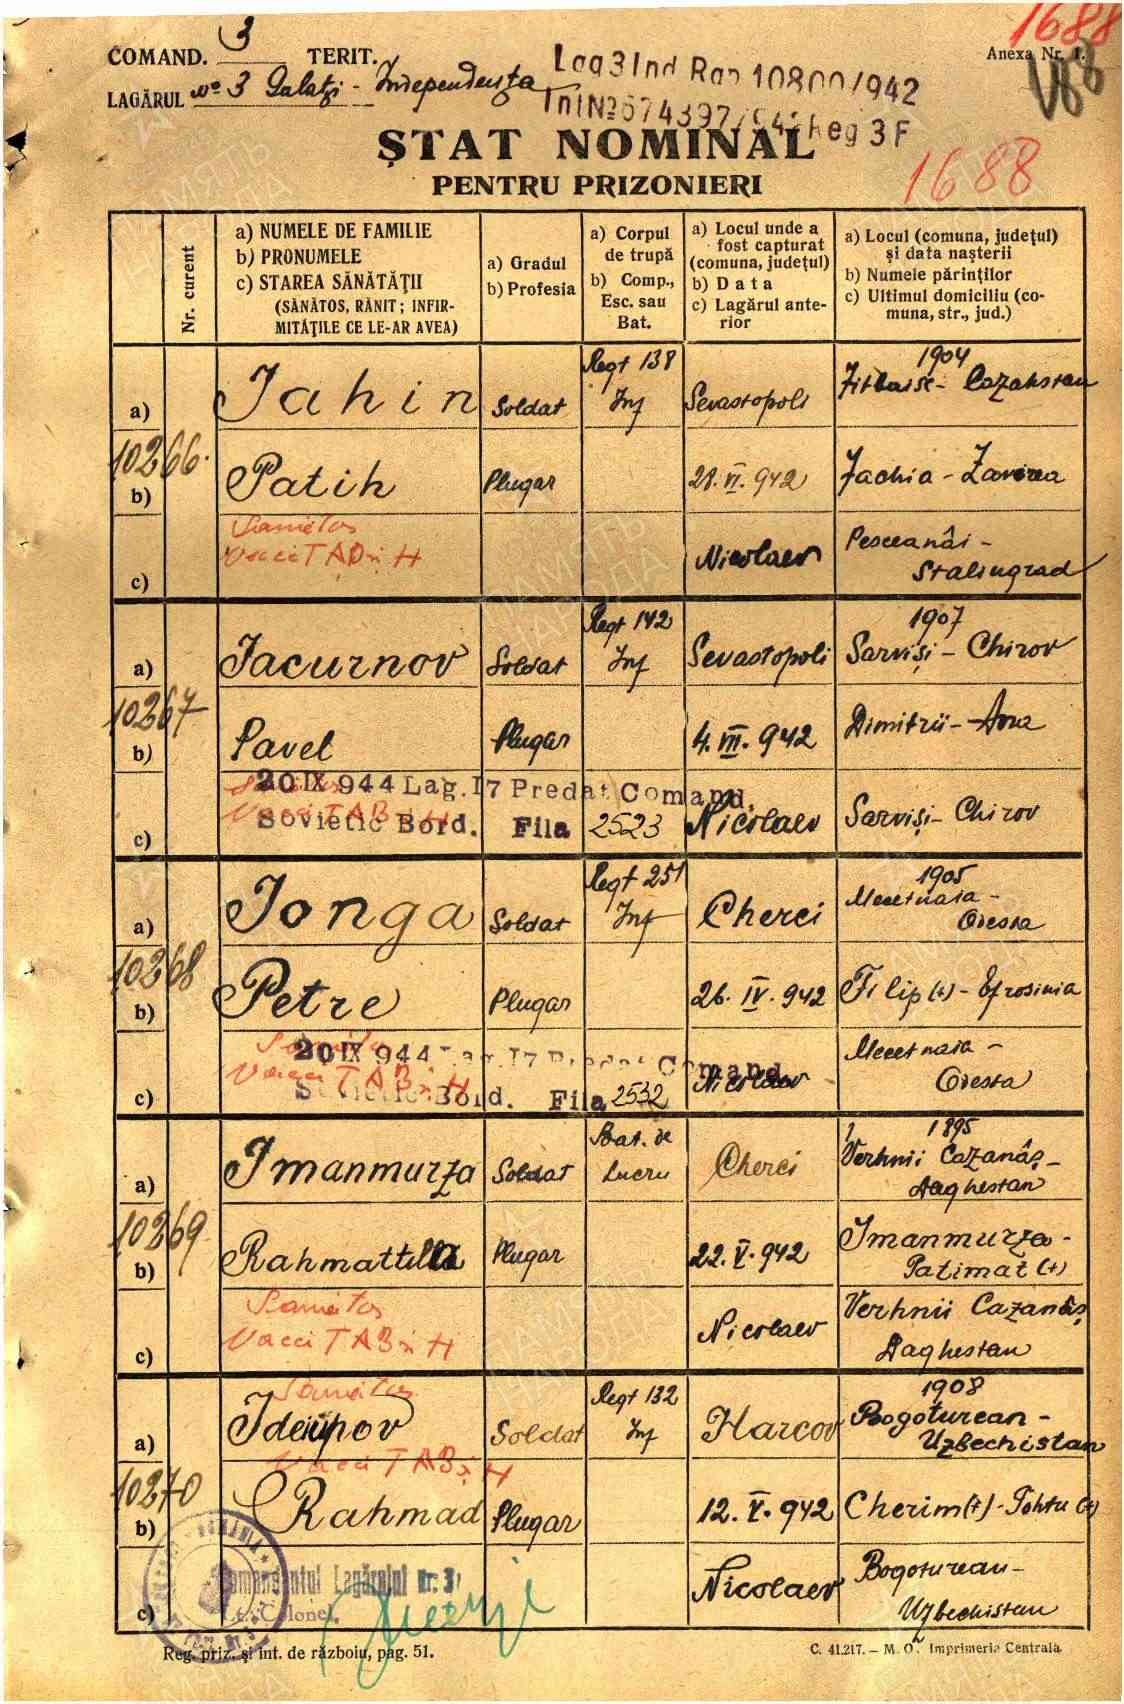 1688
COMAND. 3 TERIT.
Anexa Nr. 1.
188
LAGĂRUL No 3 Galatzi - Independența
Lag 3 Ind Rap 10800/942
Int No 674397/942 Reg 3 F
ȘTAT NOMINAL
1688
PENTRU PRIZONIERI
Nr. curent
a) NUMELE DE FAMILIE
b) PRONUMELE
c) STAREA SĂNĂTĂȚII
(SĂNĂTOS, RĂNIT; INFIR-
MITĂȚILE CE LE-AR AVEA)
a) Gradul
b) Profesia
a) Corpul
de trupă
b) Comp.,
Esc. sau
Bat.
a) Locul unde a
fost capturat
(comuna, județul)
b) Data
c) Lagărul ante-
rior
a) Locul (comuna, județul)
și data nașterii
b) Numele părinților
c) Ultimul domiciliu (co-
muna, str., jud.)
10266.
a) Iahin
Soldat
Regt 138
Inf
Sevastopoli
1904
Cazahstan
b) Patih
Plugar
28. VI. 942
Zachia -
c) Sanătos
Vacci TAB și H
Nicolaev
Pesceanâi -
Stalingrad
10267
a) Iacurnov
Soldat
Regt 142
Inf
Sevastopoli
1907
Sarviși - Chirov
b) Pavel
Plugar
4. VII. 942
Dimitrii - Ana
c) Sanătos
Vacci TAB și H
20 IX 944 Lag. 17 Predat Comand.
Sovietic Bord. Fila 2523
Nicolaev
Sarviși - Chirov
10268
a) Ionga
Soldat
Regt 251
Inf
Cherci
1905
Mecetnaia -
Odessa
b) Petre
Plugar
26. IV. 942
Filip (+) - Efrosinia
c) Sanătos
Vacci TAB și H
20 IX 944 Lag. 17 Predat Comand.
Sovietic Bord. Fila 2532
Nicolaev
Mecetnaia -
Odessa
10269
a) Imanmurza
Soldat
Bat. de
Lucru
Cherci
1895
Verhnii Cazanâș -
Daghestan
b) Rahmattilla
Plugar
22. V. 942
Imanmurza -
Patimat (+)
c) Sanătos
Vacci TAB și H
Nicolaev
Verhnii Cazanâș
Daghestan
10270
Sanătos
a)
Vacci TAB și H
Soldat
Regt 132
Inf
Harcov
1908
Bogoturean -
Uzbechistan
b) Rahmad
Plugar
12. V. 942
Cherim (+) - Tohtu (+)
c)
Nicolaev
Bogoturean -
Uzbechistan
Comandantul Lagărului nr. 3
Lt. Colonel,
Reg. priz. și int. de războiu, pag. 51.
C. 41.217. — M. O. Imprimeria Centrala